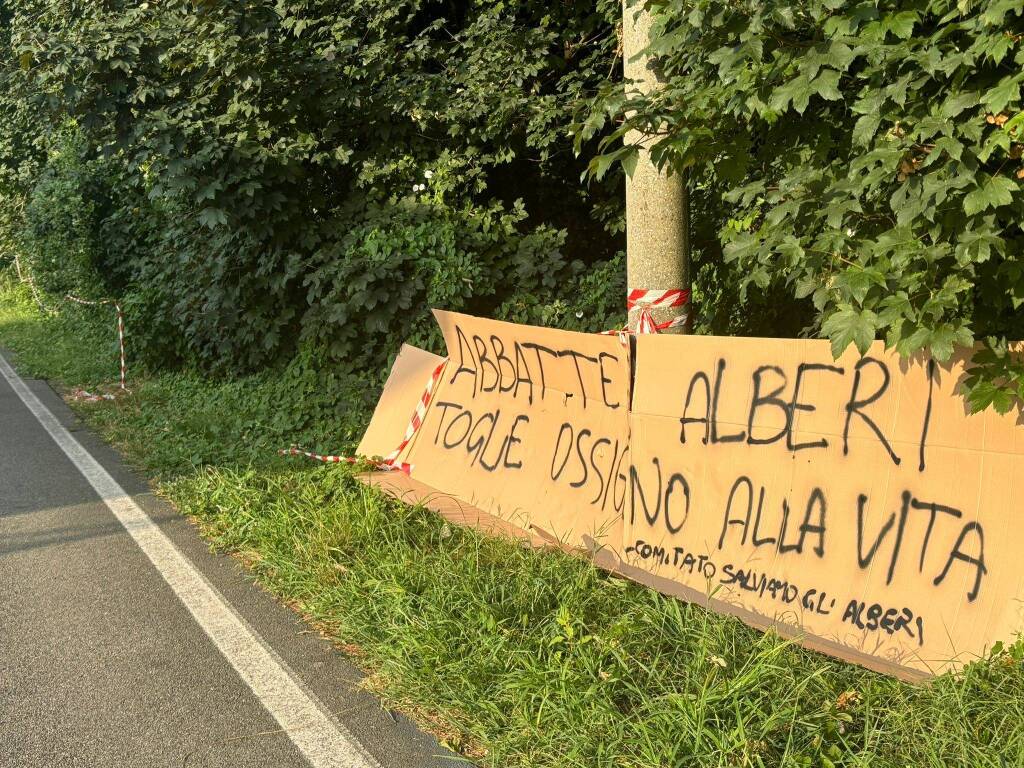 ABBATTE ALBERI
TOGLIE OSSIGNO ALLA VITA
-COMITATO SALVIAMO GLI ALBERI